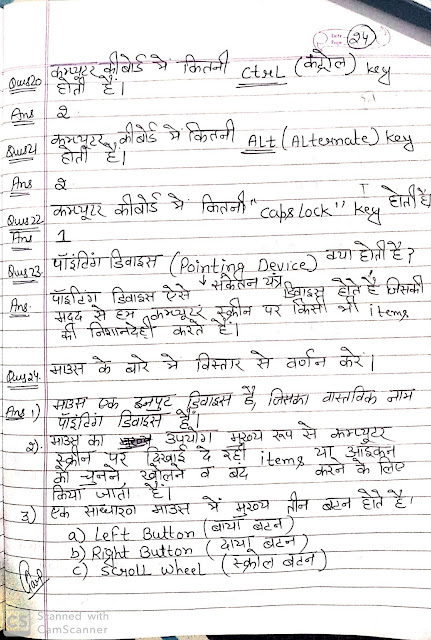 24
Ques20 कम्प्यूटर कीबोर्ड मे कितनी CtrL (कंट्रोल) key
होती हैं।
Ans 2
Ques21 कम्प्यूटर कीबोर्ड मे कितनी ALt (ALternate) key
होती हैं।
Ans 2
Ques22 कम्प्यूटर कीबोर्ड मे कितनी "caps lock" key होती हैं।
Ans 1
Ques23 पॉइंटिंग डिवाइस (Pointing Device) क्या होती है?
↓ संकेतन यंत्र
Ans. पॉइंटिंग डिवाइस ऐसे डिवाइस होते हैं जिसकी
मदद से हम कम्प्यूटर स्क्रीन पर किसी भी items
की निशानदेही करते हैं।
Ques24. माउस के बारे मे विस्तार से वर्णन करें।
Ans 1) माउस एक इनपुट डिवाइस है, जिसका वास्तविक नाम
पॉइंटिंग डिवाइस हैं।
2) माउस का उपयोग मुख्य रूप से कम्प्यूटर
स्क्रीन पर दिखाई दे रही items या आईकन
को चुनने, खोलने व बंद करने के लिए
किया जाता हैं।
3) एक साधारण माउस में मुख्य तीन बटन होते हैं।
a) Left Button (बायां बटन)
b) Right Button (दायां बटन)
c) Scroll Wheel (स्क्रोल बटन)
CS Scanned with
CamScanner